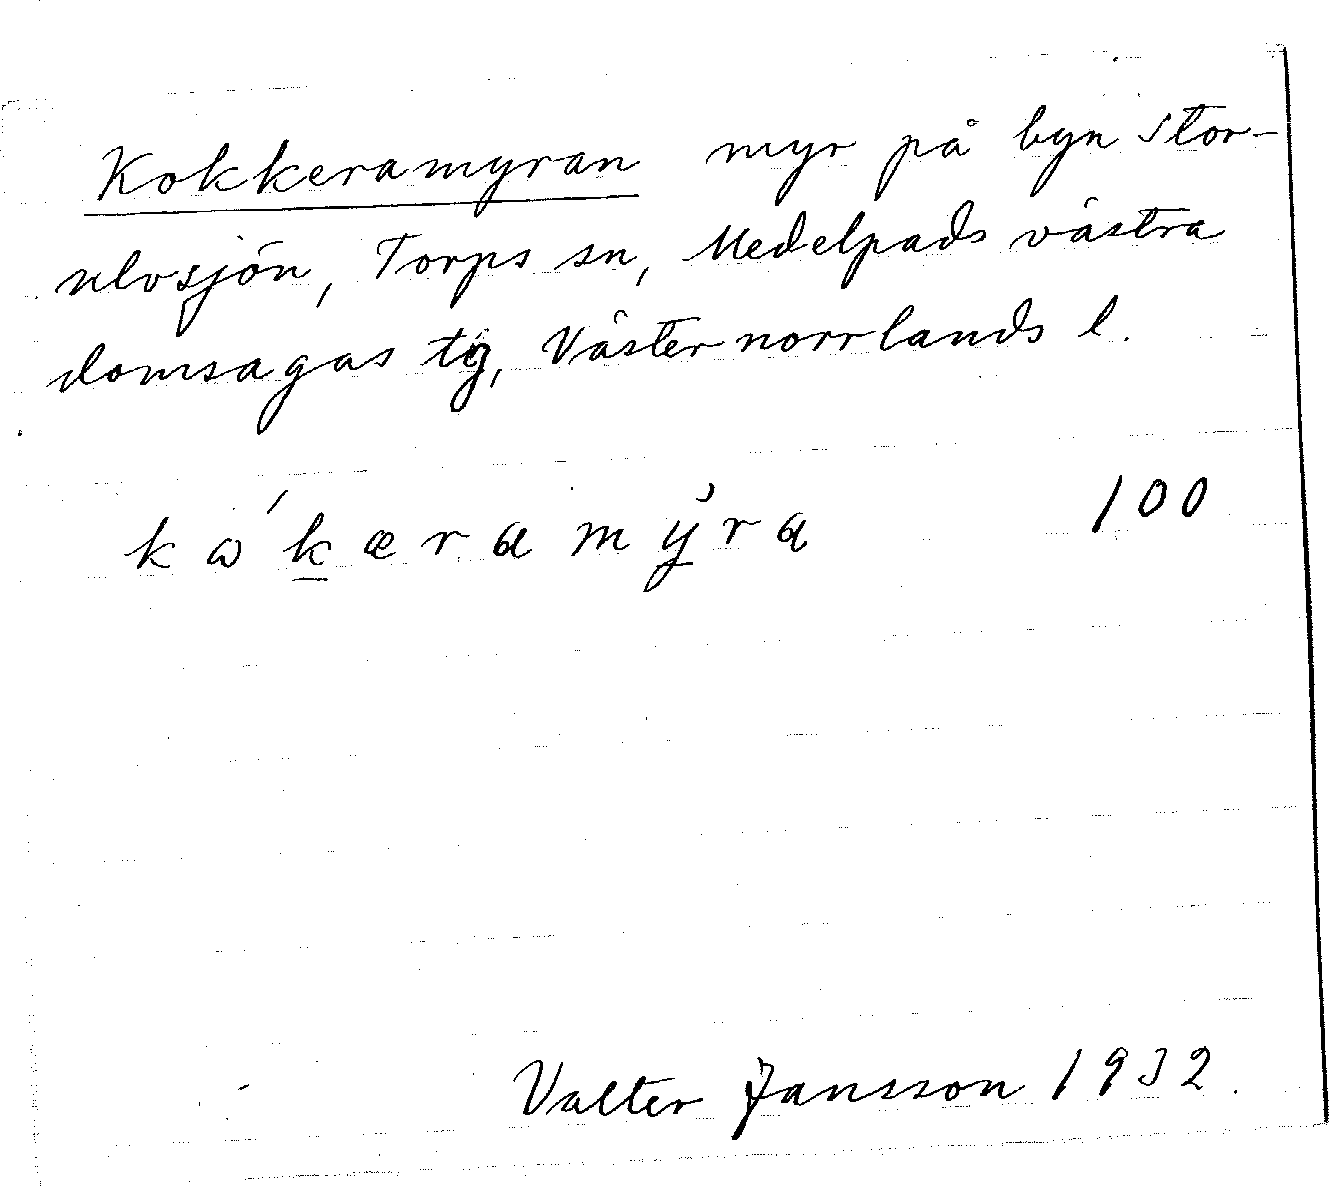 Kokkeramyran myr på byn Stor-
ulvsjön, Torps sn, Medelpads västra
domsagas tg, Västernorrlands l.
kω´k̲æramy̓ra 100
Valter Jansson 1932.